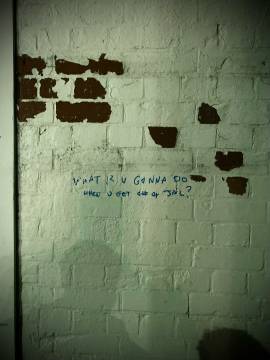 WHAT R U GONNA DO
WHEN U GET OUT OF JAIL?